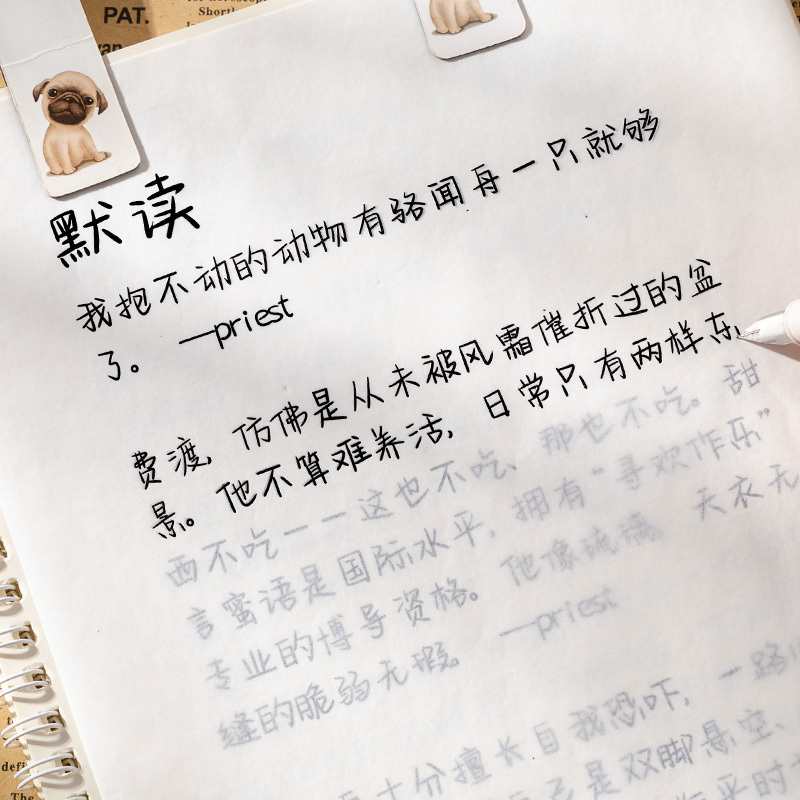 PAT.
默读
我抱不动的动物有骆闻舟一只就够
了。 —priest
费渡,仿佛是从未被风霜催折过的盆
景。他不算难养活,日常只有两样东
西不吃——这也不吃、那也不吃。甜
言蜜语是国际水平,拥有“寻欢作乐”
专业的博导资格。他像琉璃,天衣无
缝的脆弱无瑕。 —priest
十分擅长自我恐吓,一路
是双脚悬空、
平时
The